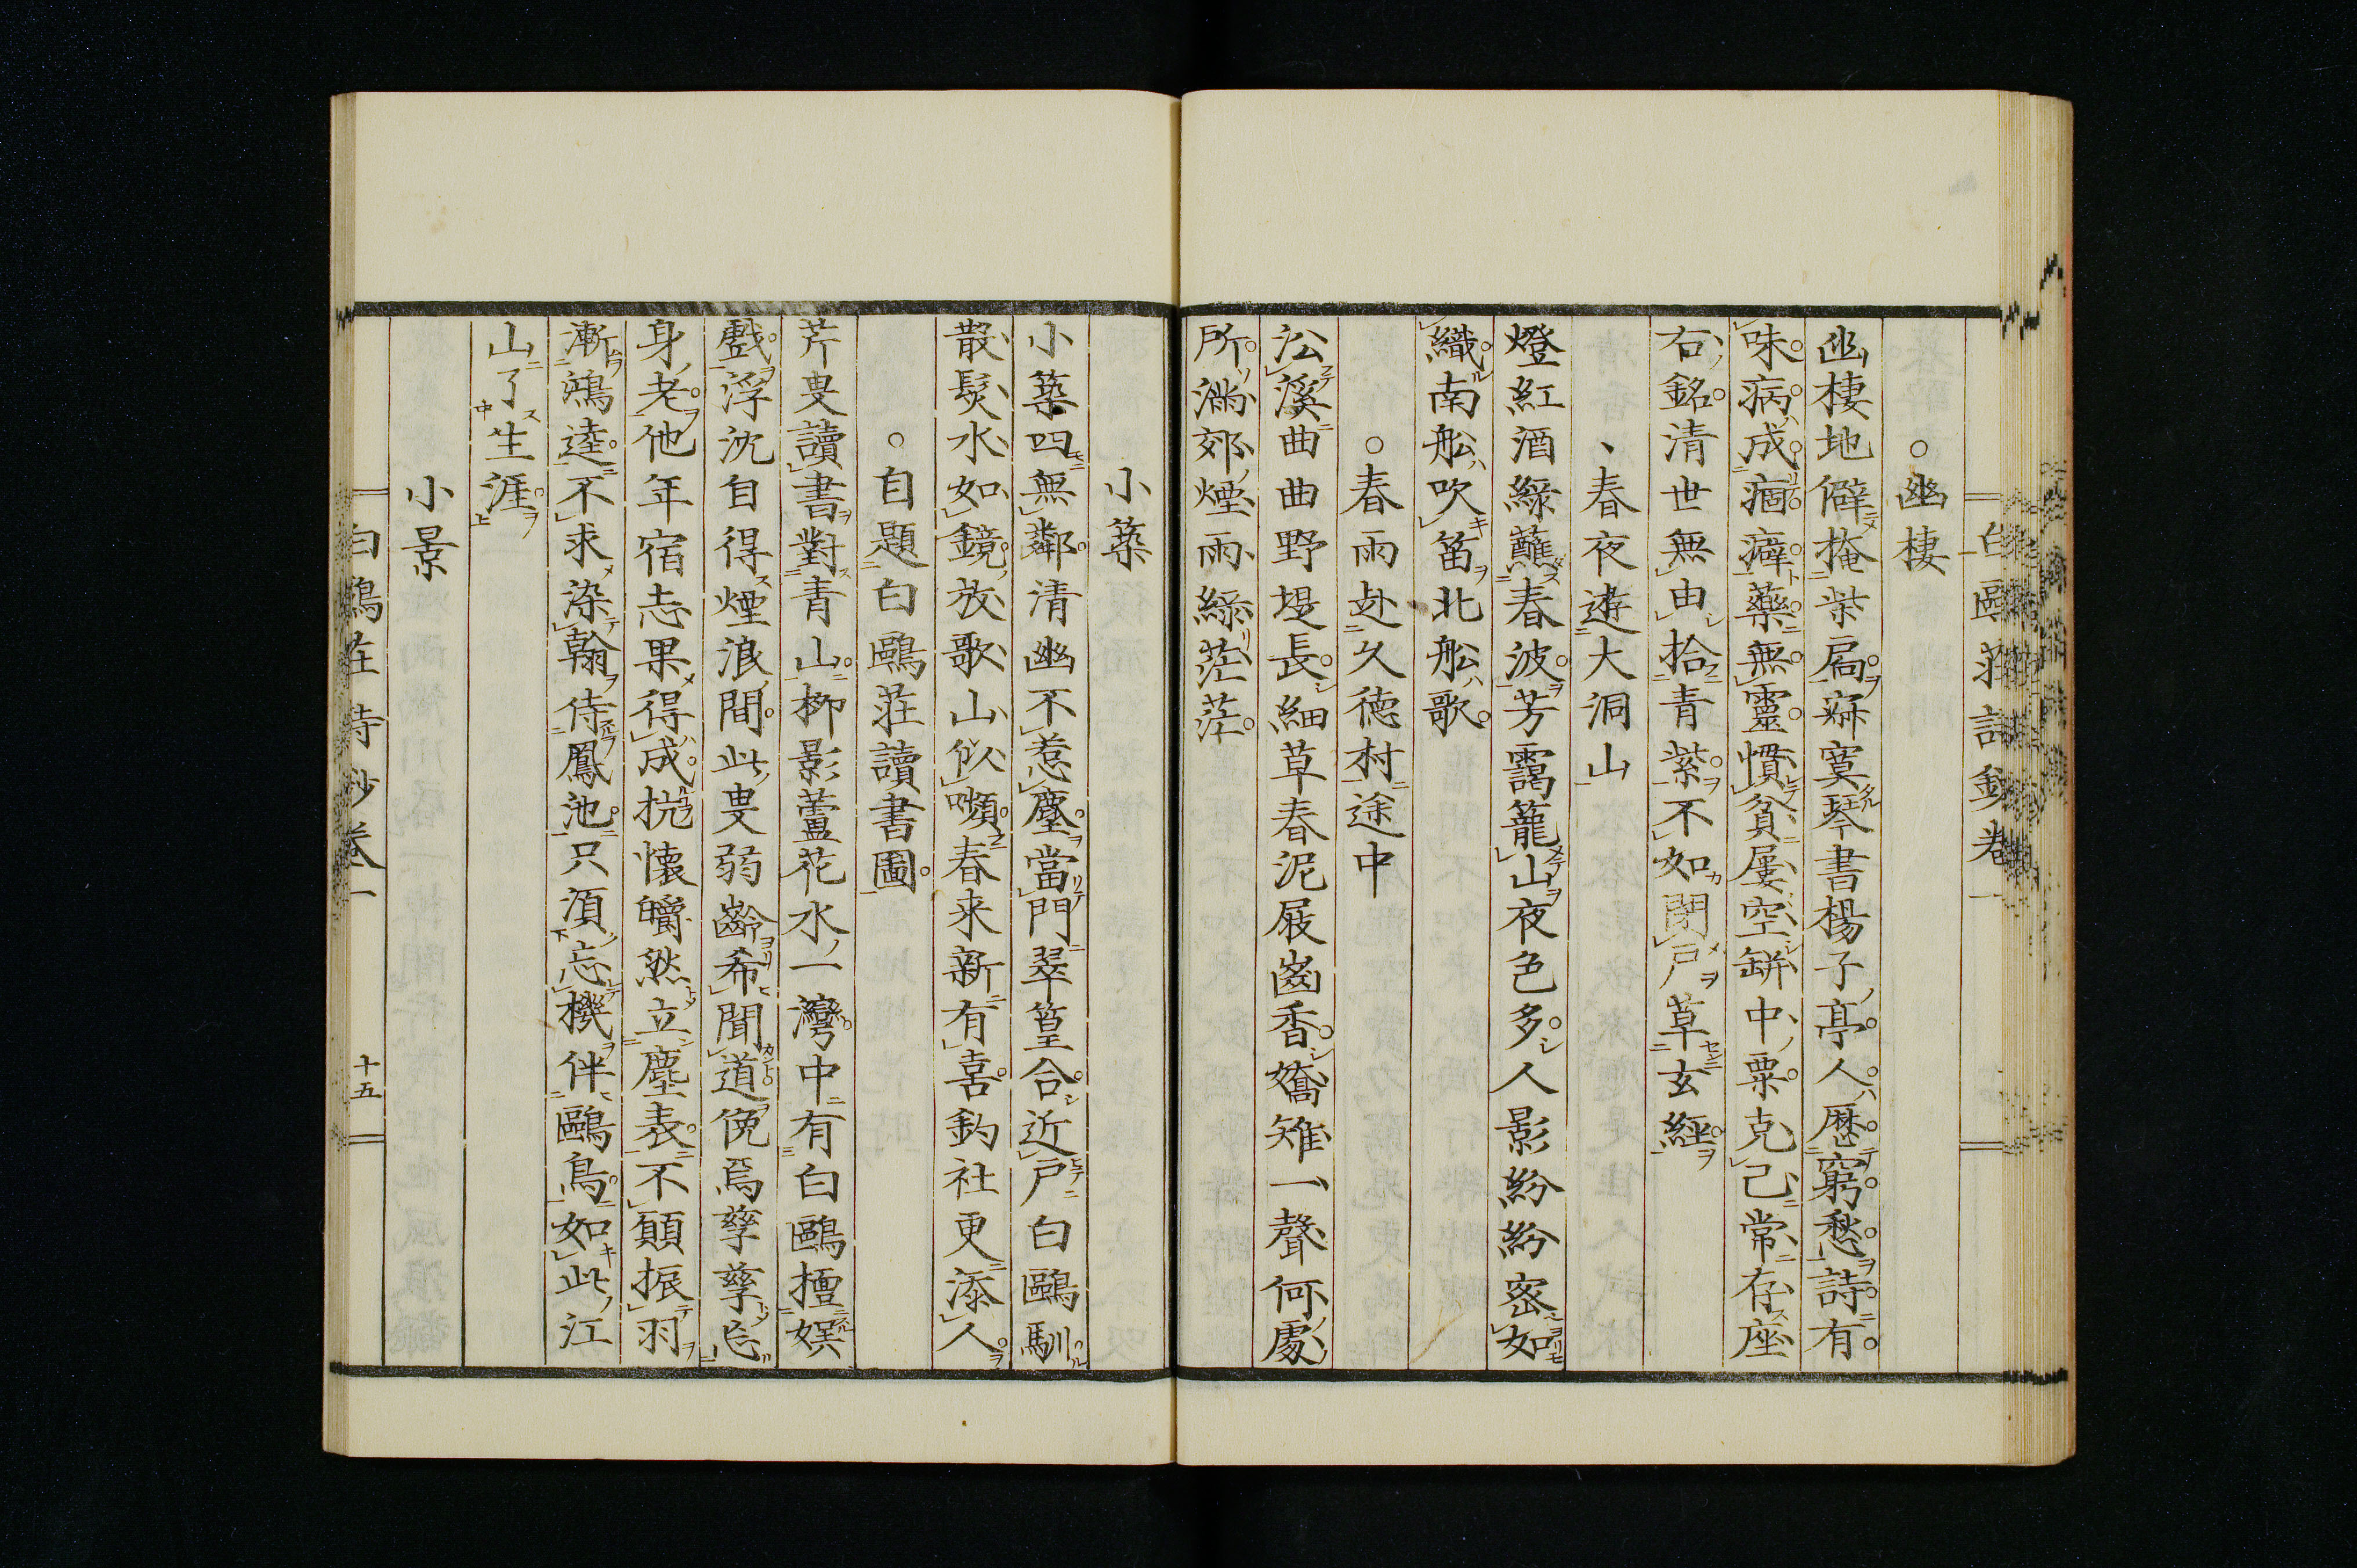 白鷗莊詩鈔卷一
○幽棲
幽棲地僻掩柴扃寂寞琴書楊子亭人歷窮愁詩有
味病成痼癖藥無靈慣貧屡空缾中粟克己常存座
右銘清世無由拾青紫不如閉戶草玄經
、春夜遊大洞山
燈紅酒綠蘸春波芳靄籠山夜色多人影紛紛密如
織南舩吹笛北舩歌
○春雨赴久德村途中
沿溪曲曲野堤長細草春泥屐齒香嬌雉一聲何處
所滿郊煙雨綠茫茫
小築
小築四無鄰清幽不惹塵當門翠篁合近戶白鷗馴
散髮水如鏡放歌山似嚬春来新有喜釣社更添人
○自題白鷗莊讀書圖
芹叟讀書對青山柳影蘆花水一灣中有白鷗擅娯
戲浮沈自得煙浪間此叟弱齡希聞道俛焉孳孳忘
身老他年宿志果得成挩懷皭然立塵表不願振羽
漸鴻逵不求染翰侍鳳池只湏忘機伴鷗鳥如此江
山了生涯
小景
白鷗莊詩鈔卷一 十五